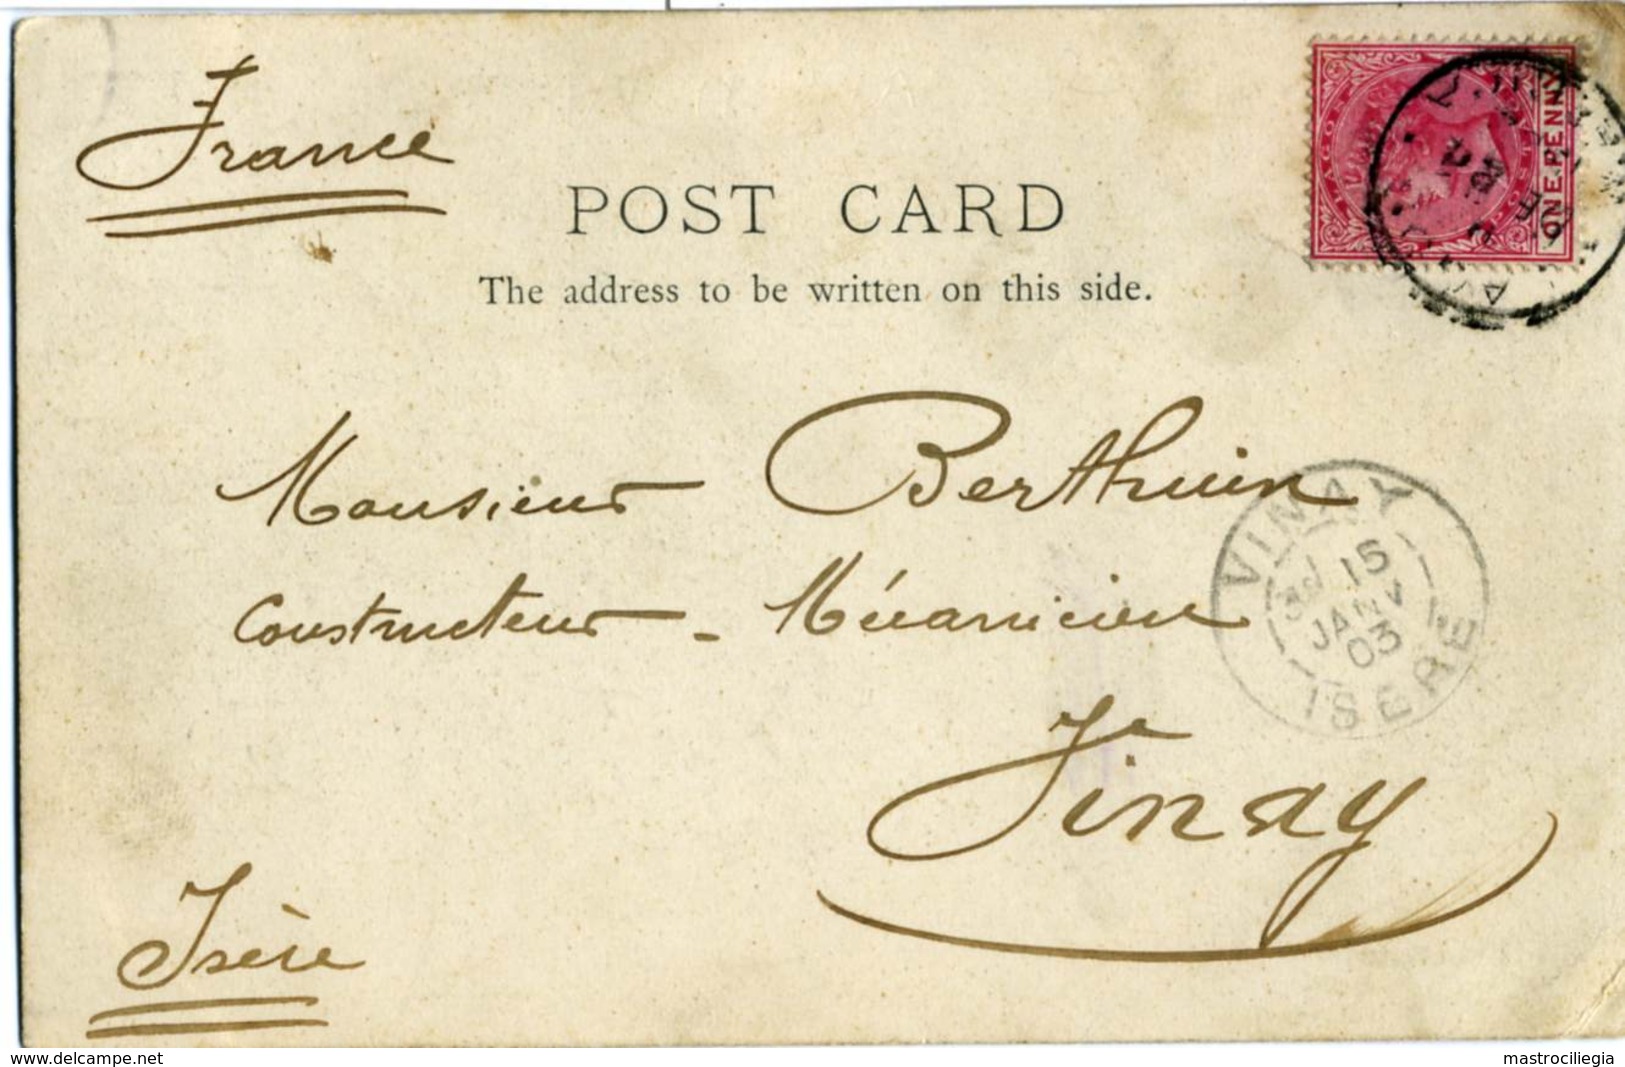 France
POST CARD
The address to be written on this side.
ONE PENNY
Monsieur Berthuin
Constructeur - Mécanicien
VINAY
15
JANV
03
ISERE
Vinay
Isère
www.delcampe.net
mastrociliegia